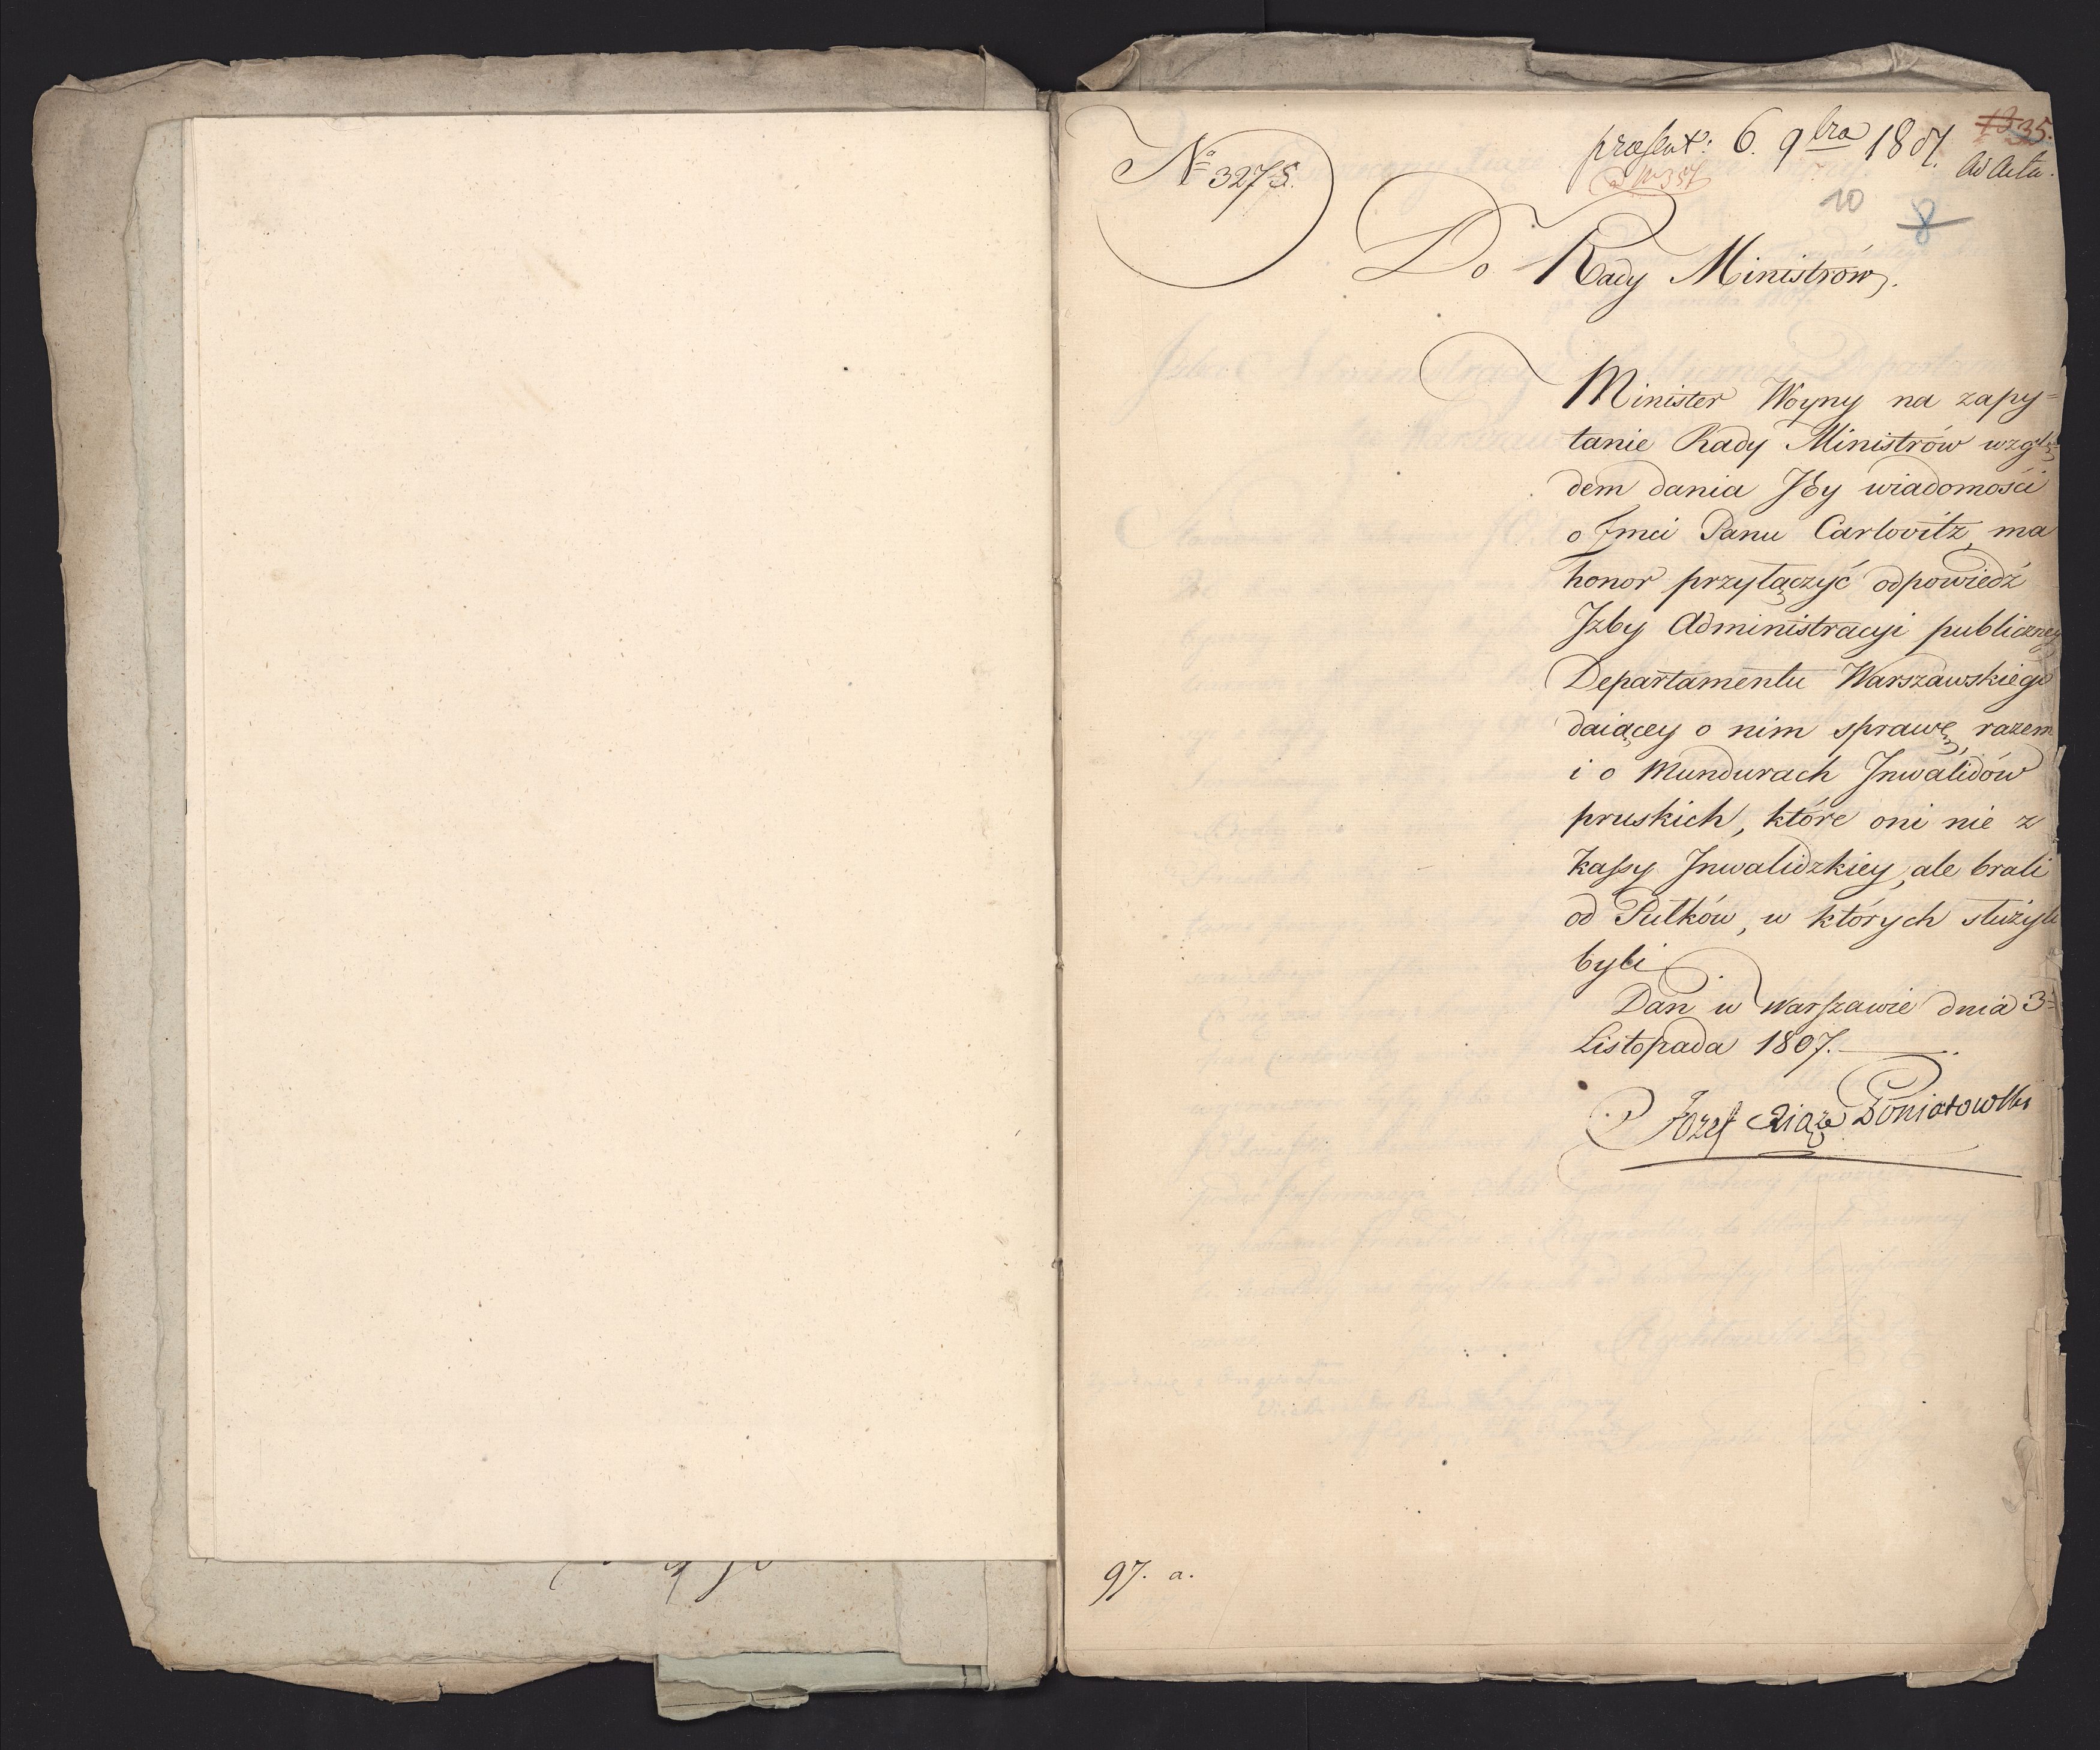 No 3275.
præsent: 6. 9bra 1807.
35.
ad Acta.
10
8
Do Rady Ministrów.
Minister Woyny na zapy=
tanie Rady Ministrów wzglę
dem dania Jey wiadomości
o Jmci Panu Carlovitz, ma
honor przyłączyć odpowiedź
Jzby Administracyi publiczney
Departamentu Warszawskiego
daiącey o nim sprawę, razem
i o Mundurach Jnwalidów
pruskich, które oni nie z
Kassy Jnwalidzkiey, ale brali
od Pułków, w których służyli
byli
Dan w Warszawie dnia 3=
Listopada 1807.
Józef Xiąże Poniatowski
97. a.